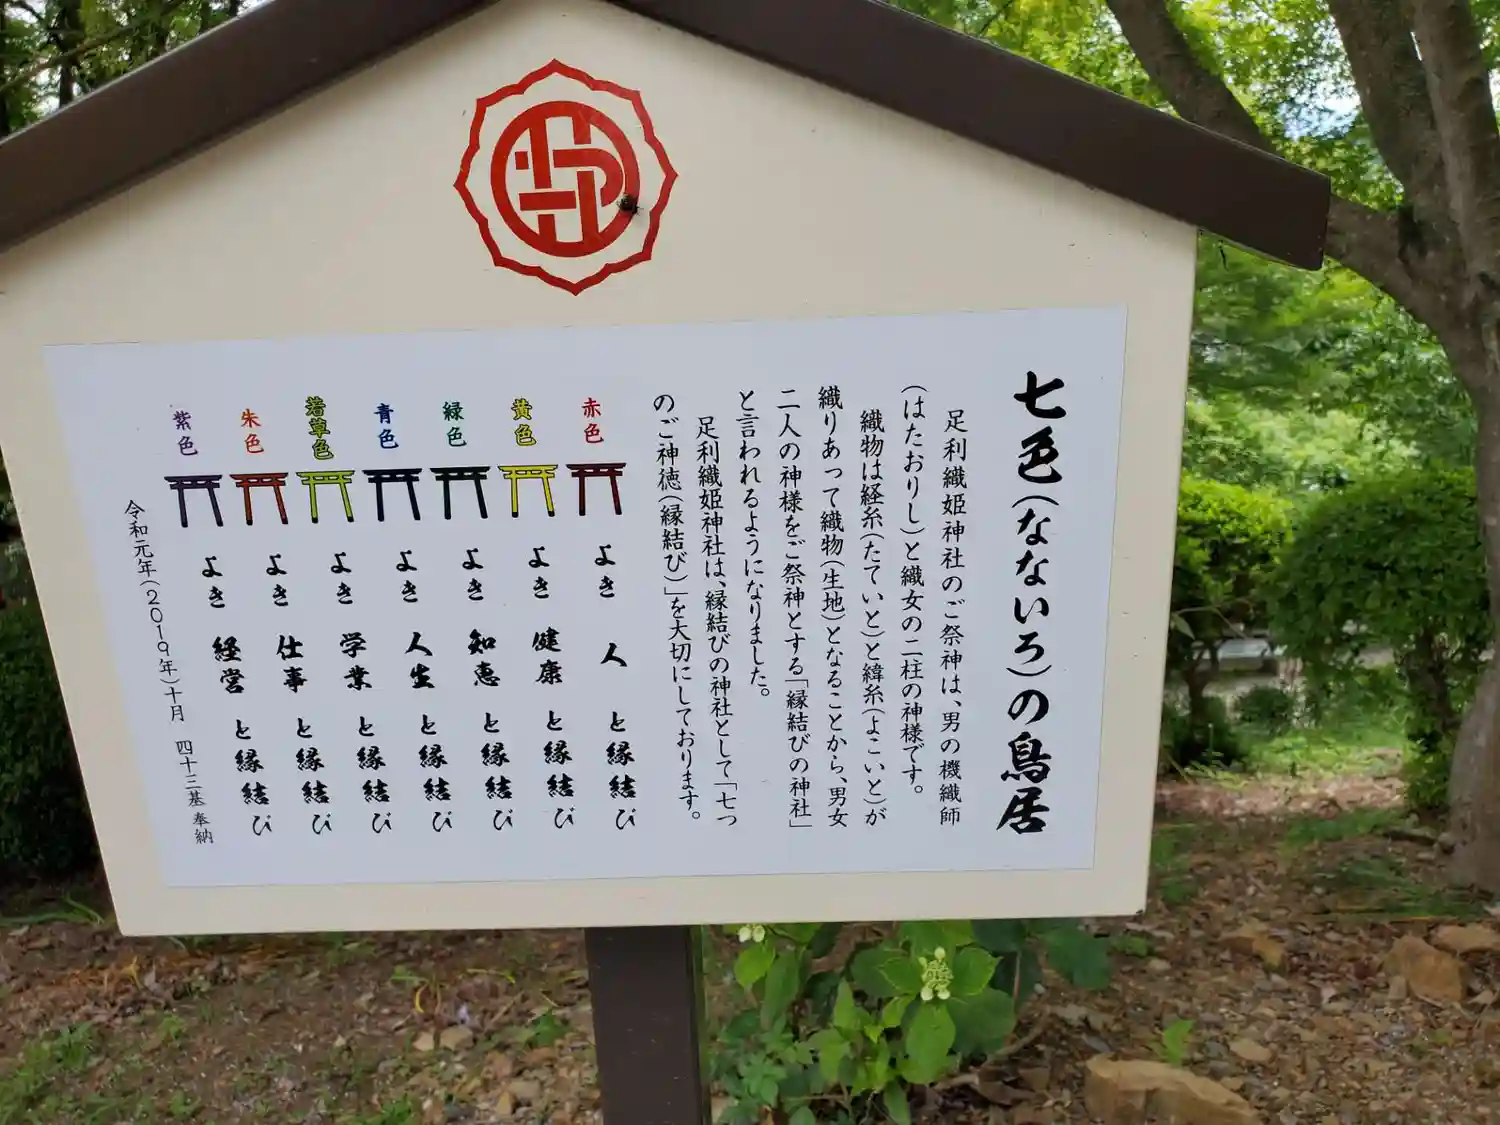 七色(なないろ)の鳥居
足利織姫神社のご祭神は、男の機織師
(はたおりし)と織女の二柱の神様です。
織物は経糸(たていと)と緯糸(よこいと)が
織りあって織物(生地)となることから、男女
二人の神様をご祭神とする「縁結びの神社」
と言われるようになりました。
足利織姫神社は、縁結びの神社として「七つ
のご神徳(縁結び)」を大切にしております。
赤色 よき 人 と縁結び
黄色 よき 健康 と縁結び
緑色 よき 知恵 と縁結び
青色 よき 人生 と縁結び
若草色 よき 学業 と縁結び
朱色 よき 仕事 と縁結び
紫色 よき 経営 と縁結び
令和元年(2019年)十月 四十三基奉納